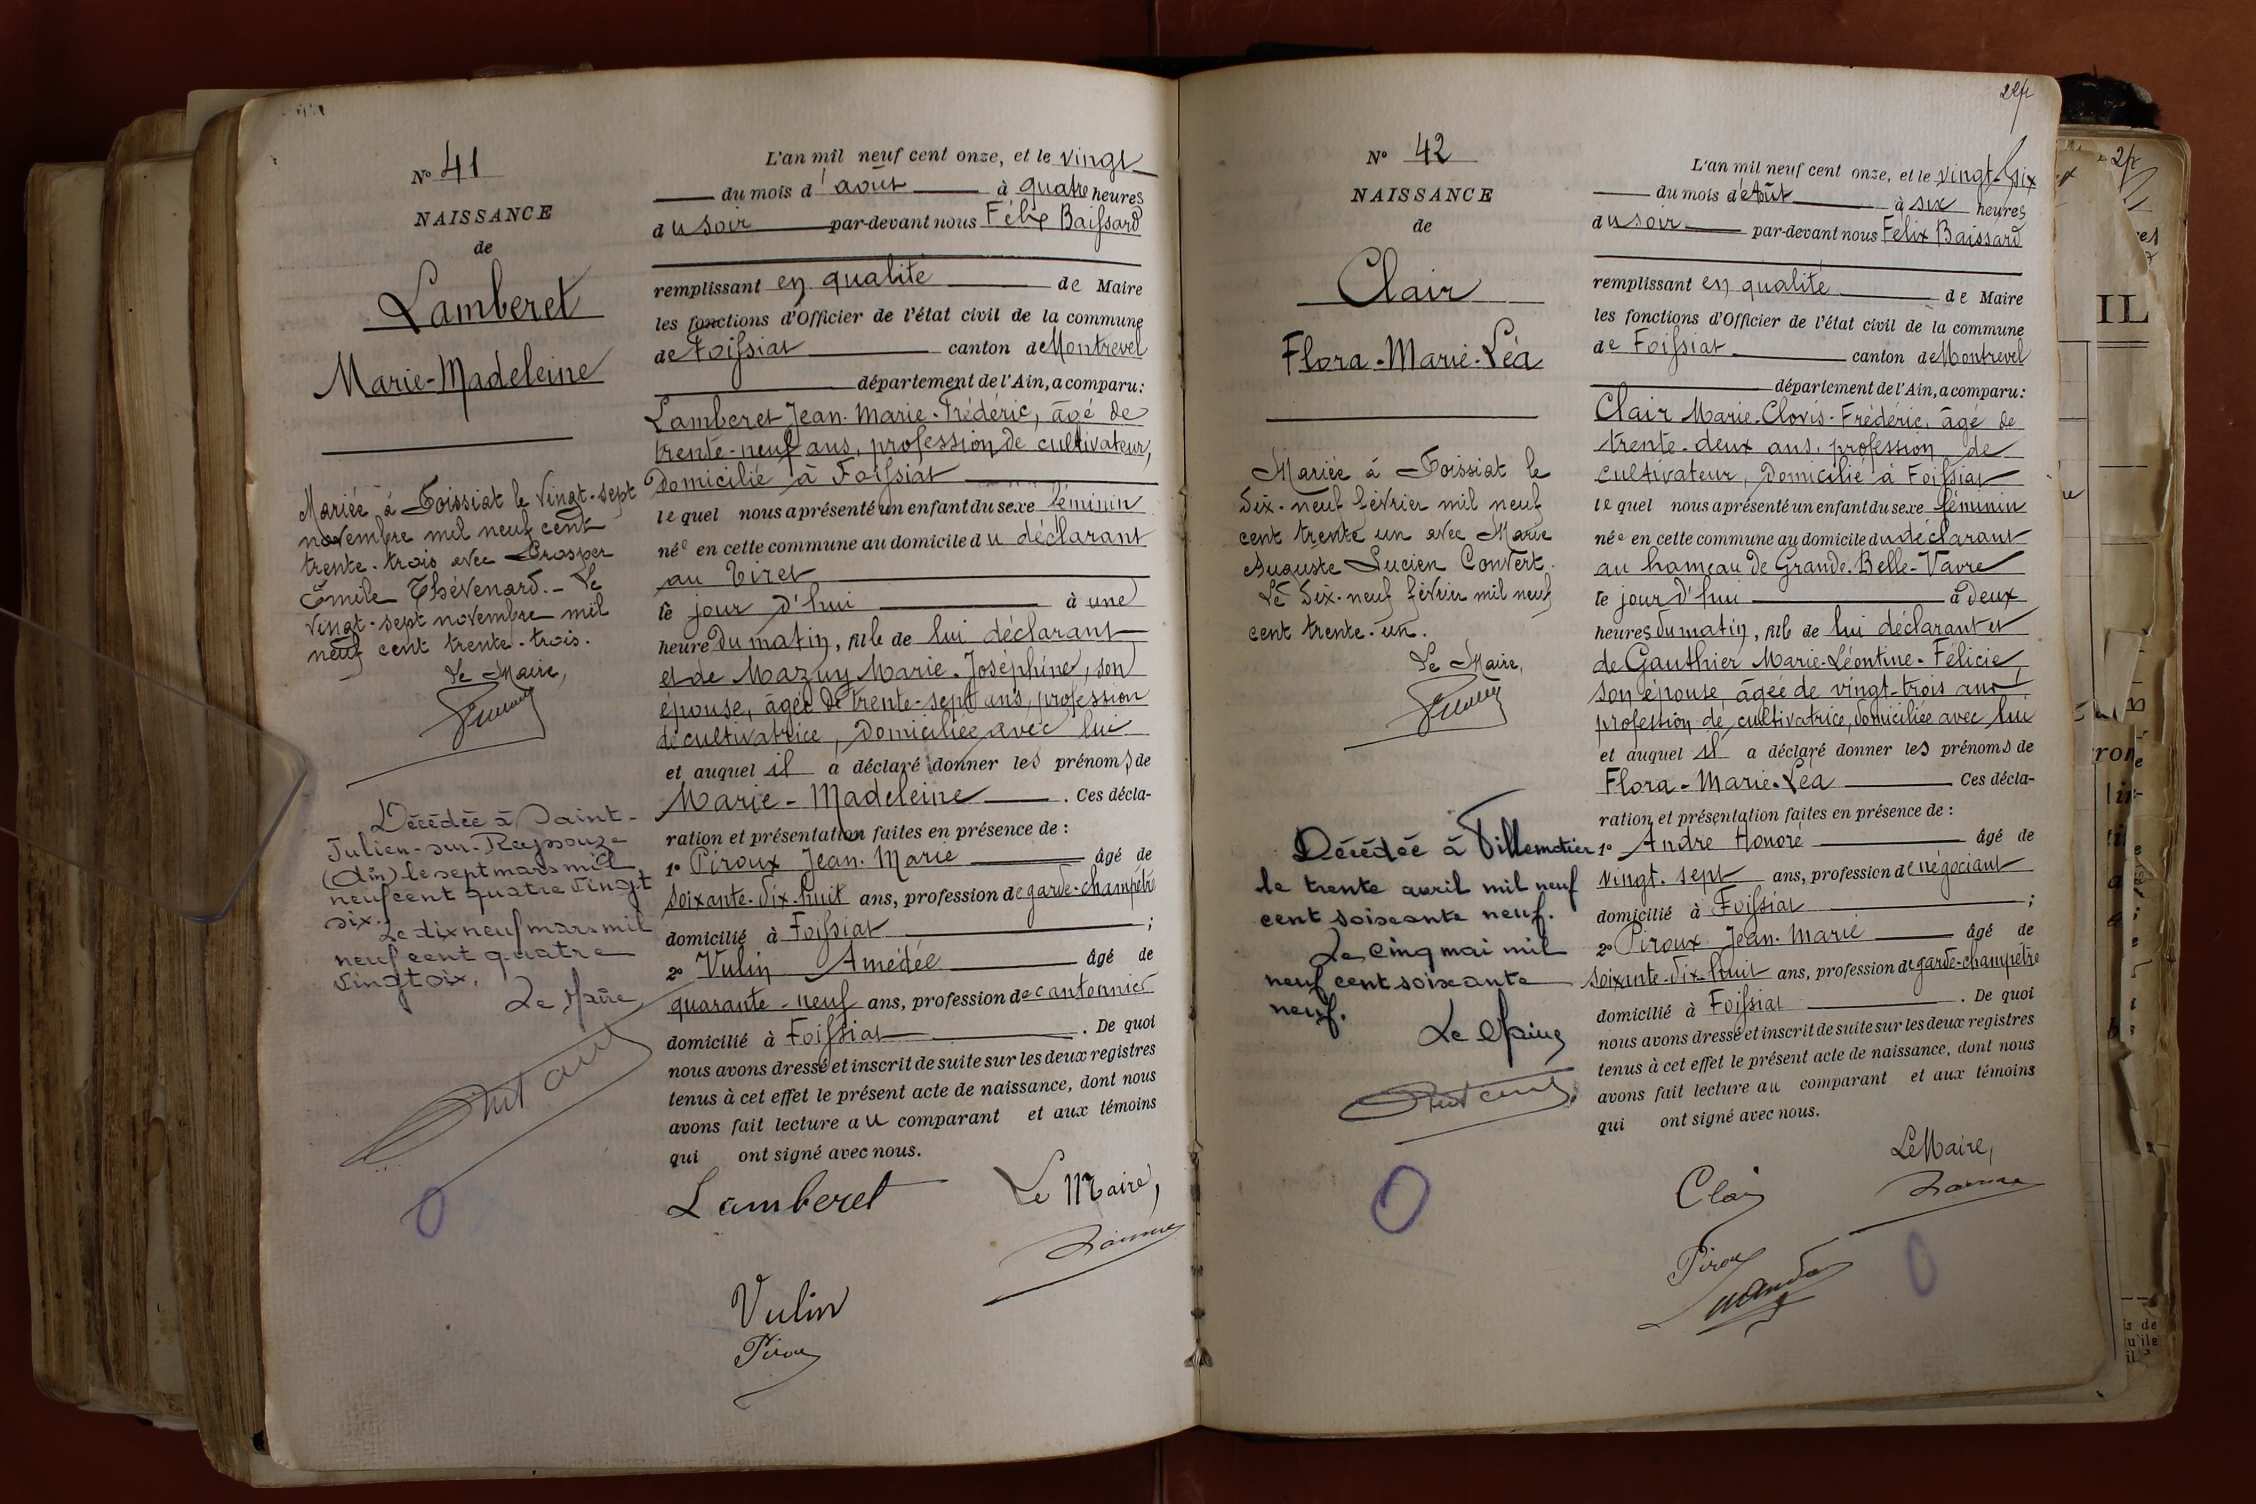 No 41
NAISSANCE
de
Lamberet
Marie-Madeleine
Mariée à Foissiat le vingt-sept
novembre mil neuf cent
trente-trois avec Prosper
Emile Thévenard. - Le
vingt-sept novembre mil
neuf cent trente-trois.
Le Maire,
Décédée à Saint-
Julien-sur-Reyssouze
(Ain) le sept mars mil
neuf cent quatre vingt
six.
Le dix neuf mars mil
neuf cent quatre
vingt six.
Le Maire
L'an mil neuf cent onze, et le vingt
du mois d'août à quatre heures
du soir par-devant nous Félix Baissard
remplissant en qualité de Maire
les fonctions d'Officier de l'état civil de la commune
de Foissiat canton de Montrevel
département de l'Ain, a comparu:
Lamberet Jean-Marie-Frédéric, âgé de
trente-neuf ans, profession de cultivateur,
domicilié à Foissiat
lequel nous a présenté un enfant du sexe féminin
née en cette commune au domicile du déclarant
au Tiret
le jour d'hui à une
heure du matin, fille de lui déclarant
et de Mazuy Marie-Joséphine, son
épouse, âgée de trente-sept ans, profession
de cultivatrice, domiciliée avec lui
et auquel il a déclaré donner les prénoms de
Marie-Madeleine. Ces décla-
ration et présentation faites en présence de :
1o Piroux Jean-Marie âgé de
soixante-dix-huit ans, profession de garde-champêtre
domicilié à Foissiat ;
2o Vulin Amédée âgé de
quarante-neuf ans, profession de cantonnier
domicilié à Foissiat. De quoi
nous avons dressé et inscrit de suite sur les deux registres
tenus à cet effet le présent acte de naissance, dont nous
avons fait lecture au comparant et aux témoins
qui ont signé avec nous.
Lamberet
Le Maire,
Vulin
Piroux
No 42
NAISSANCE
de
Clair
Flora-Marie-Léa
Mariée à Foissiat le
dix-neuf février mil neuf
cent trente un avec Marie
Auguste Lucien Convert.
Le dix-neuf février mil neuf
cent trente-un.
Le Maire,
Décédée à Villemotier
le trente avril mil neuf
cent soixante neuf.
Le cinq mai mil
neuf cent soixante
neuf.
Le Maire
L'an mil neuf cent onze, et le vingt-six
du mois d'août à six heures
du soir par-devant nous Félix Baissard
remplissant en qualité de Maire
les fonctions d'Officier de l'état civil de la commune
de Foissiat canton de Montrevel
département de l'Ain, a comparu:
Clair Marie-Clovis-Frédéric, âgé de
trente-deux ans, profession de
cultivateur, domicilié à Foissiat
lequel nous a présenté un enfant du sexe féminin
née en cette commune au domicile du déclarant
au hameau de Grande-Belle-Vavre
le jour d'hui à deux
heures du matin, fille de lui déclarant et
de Gauthier Marie-Léontine-Félicie,
son épouse, âgée de vingt-trois ans,
profession de cultivatrice, domiciliée avec lui
et auquel il a déclaré donner les prénoms de
Flora-Marie-Léa Ces décla-
ration et présentation faites en présence de :
1o André Honoré âgé de
vingt-sept ans, profession de négociant
domicilié à Foissiat ;
2o Piroux Jean-Marie âgé de
soixante-dix-huit ans, profession de garde-champêtre
domicilié à Foissiat. De quoi
nous avons dressé et inscrit de suite sur les deux registres
tenus à cet effet le présent acte de naissance, dont nous
avons fait lecture au comparant et aux témoins
qui ont signé avec nous.
Le Maire,
Clair
Piroux
IL